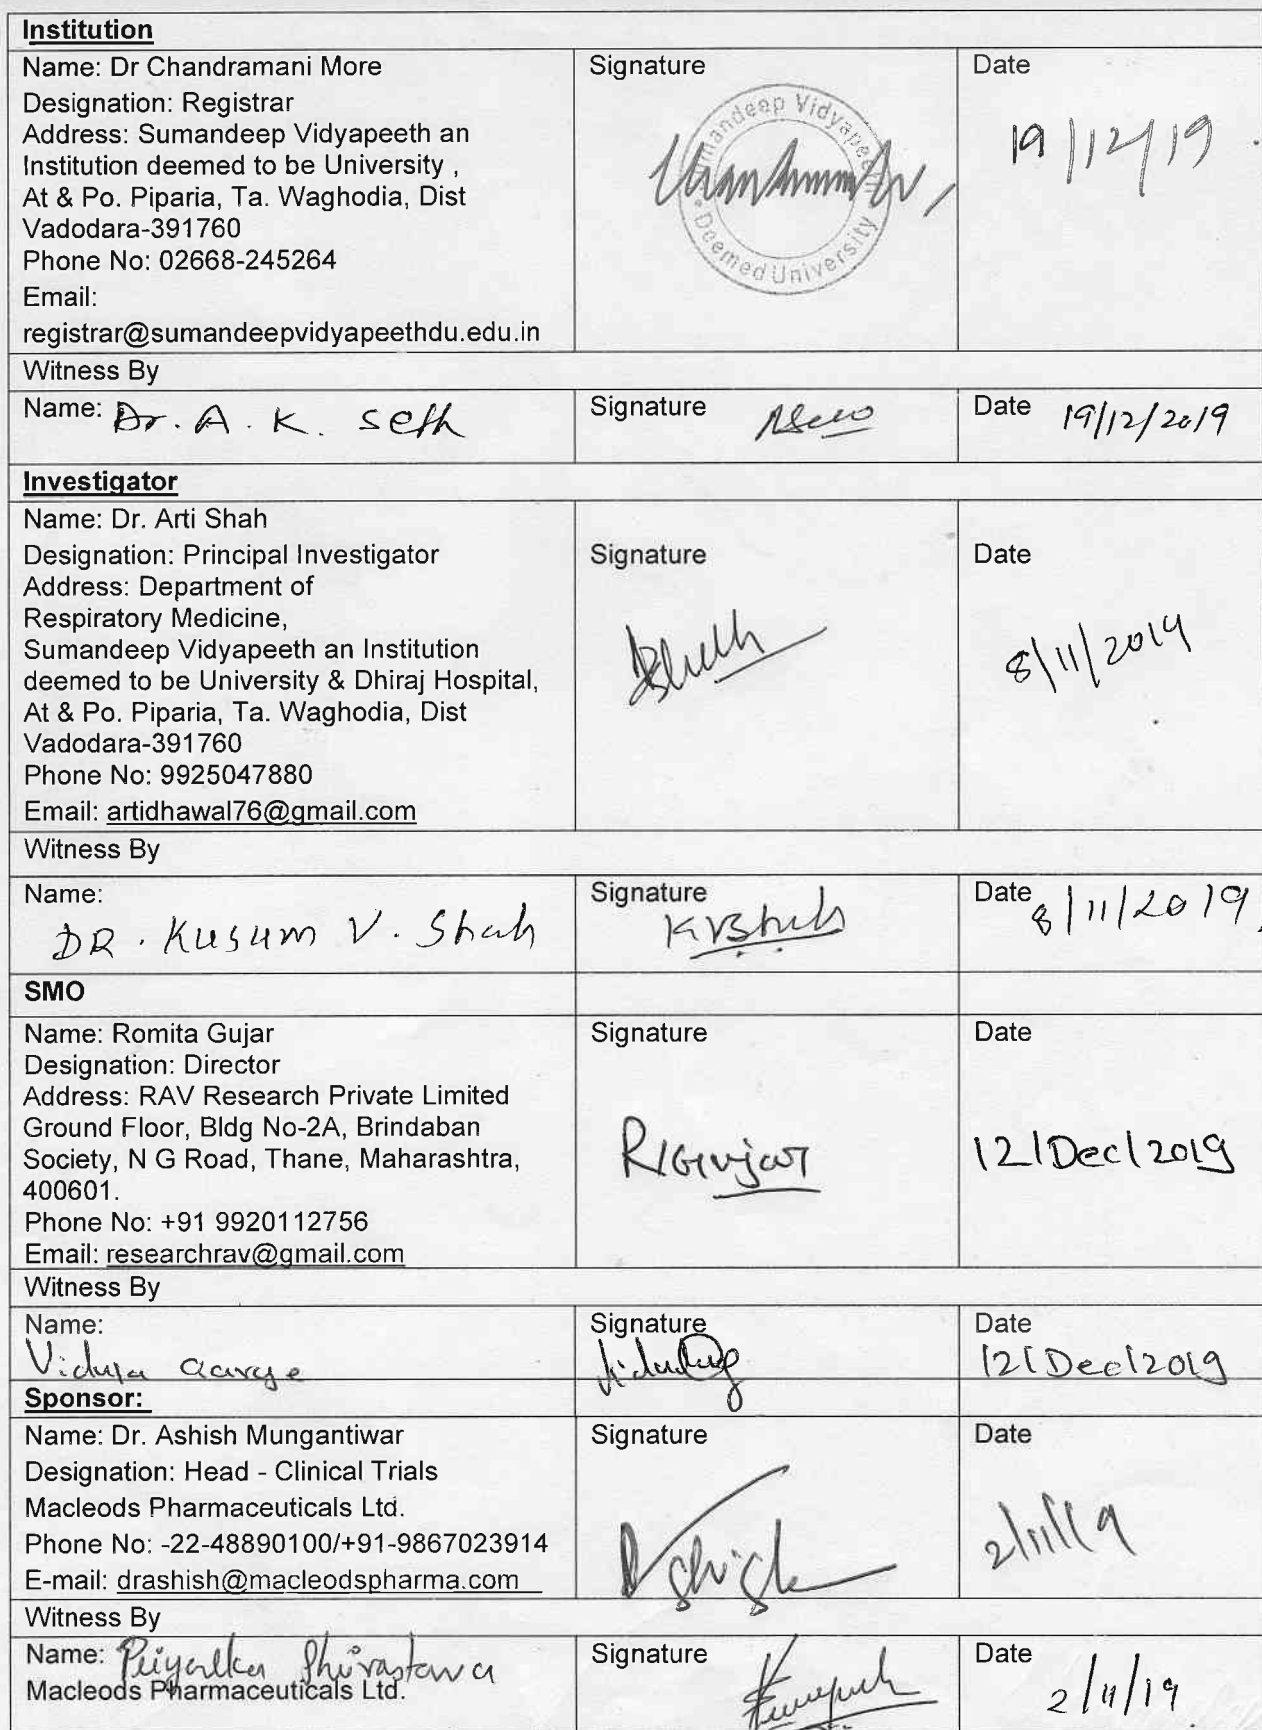 Institution
Name: Dr Chandramani More
Signature
Date
Designation: Registrar
Address: Sumandeep Vidyapeeth an
Institution deemed to be University ,
At & Po. Piparia, Ta. Waghodia, Dist
Vadodara-391760
Phone No: 02668-245264
Email:
registrar@sumandeepvidyapeethdu.edu.in
Sumandeep Vidyapeeth
Deemed University
19/12/19
Witness By
Name: Dr. A. K. Seth
Signature
Date 19/12/2019
Investigator
Name: Dr. Arti Shah
Designation: Principal Investigator
Signature
Date
Address: Department of
Respiratory Medicine,
Sumandeep Vidyapeeth an Institution
deemed to be University & Dhiraj Hospital,
At & Po. Piparia, Ta. Waghodia, Dist
Vadodara-391760
Phone No: 9925047880
Email: artidhawal76@gmail.com
8/11/2019
Witness By
Name:
DR. Kusum V. Shah
Signature
KVShah
Date 8/11/2019
SMO
Name: Romita Gujar
Signature
Date
Designation: Director
Address: RAV Research Private Limited
Ground Floor, Bldg No-2A, Brindaban
Society, N G Road, Thane, Maharashtra,
400601.
Phone No: +91 9920112756
Email: researchrav@gmail.com
RGujar
12/Dec/2019
Witness By
Name:
Signature
Date
12/Dec/2019
Sponsor:
Name: Dr. Ashish Mungantiwar
Signature
Date
Designation: Head - Clinical Trials
Macleods Pharmaceuticals Ltd.
Phone No: -22-48890100/+91-9867023914
E-mail: drashish@macleodspharma.com
Ashish
2/11/19
Witness By
Name: Priyanka Shrivastava
Macleods Pharmaceuticals Ltd.
Signature
Date
2/11/19